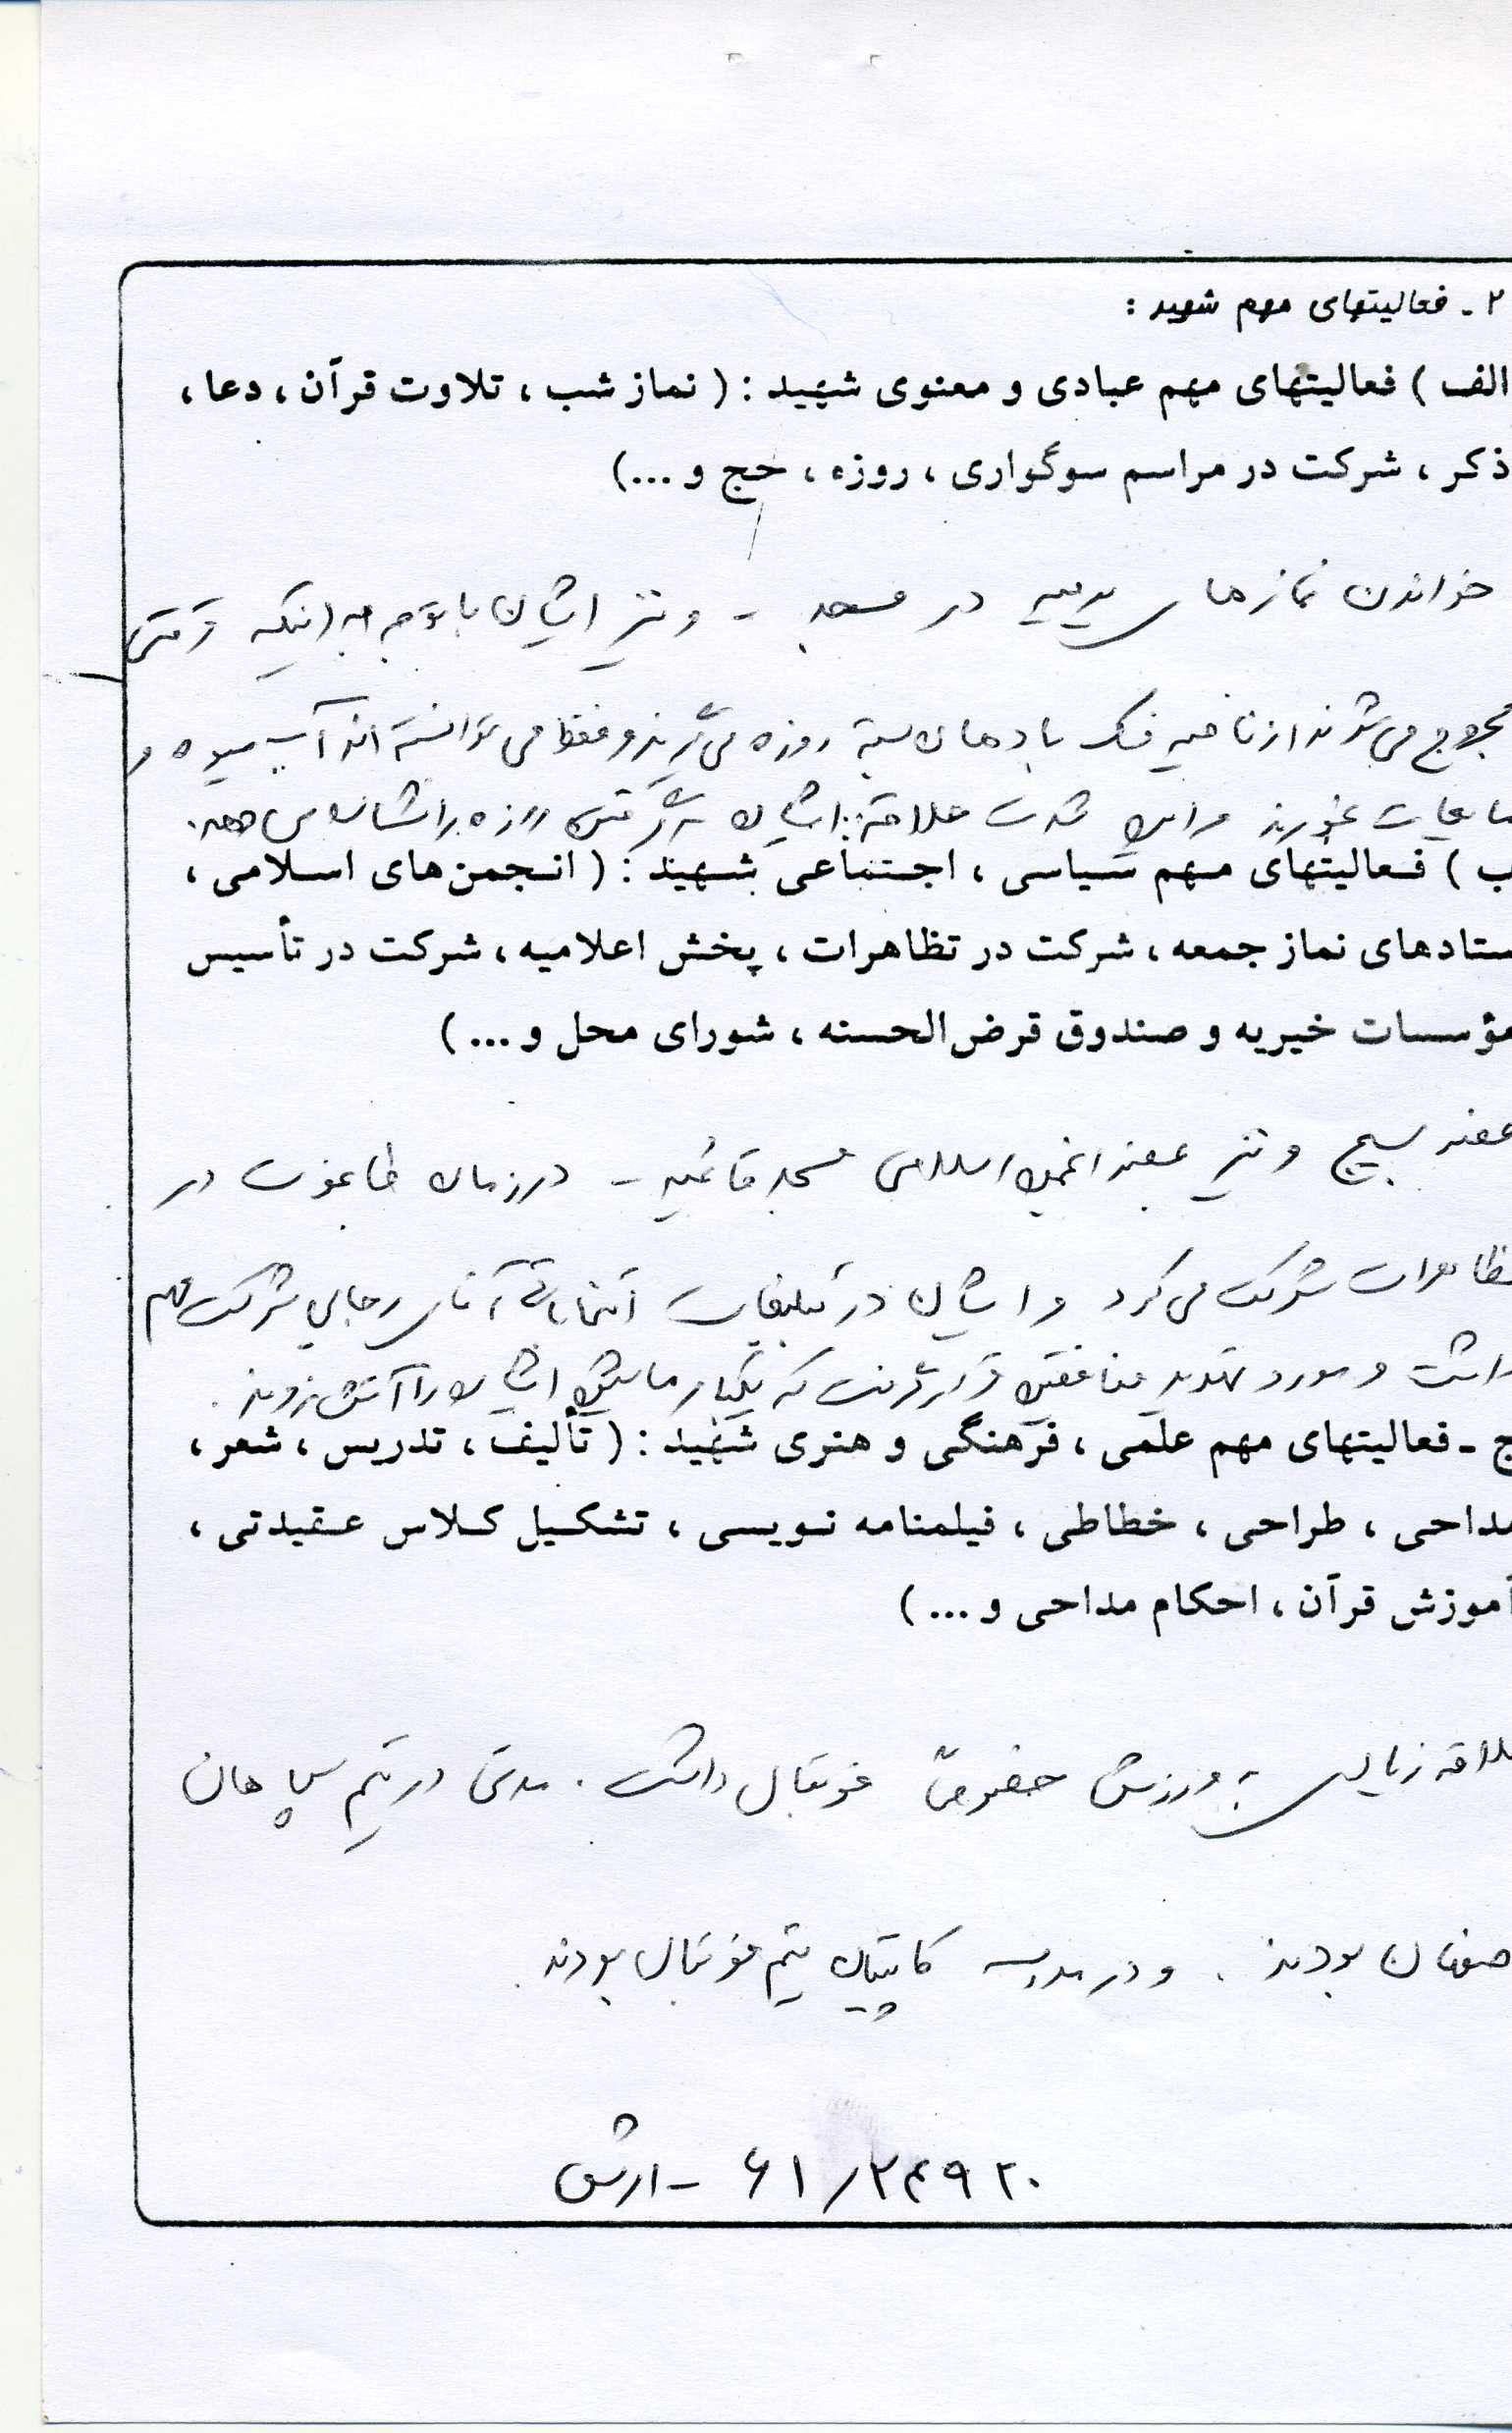 ۲ - فعالیتهای مهم شهید :
الف ) فعالیتهای مهم عبادی و معنوی شهید : ( نماز شب ، تلاوت قرآن ، دعا ،
ذکر ، شرکت در مراسم سوگواری ، روزه ، حج و ... )
خواندن نمازهای یومیه در مسجد - و نیز ایشان با توجه به اینکه وقتی
مجروح می شوند از ناحیه فک با دهان بسته روزه می گیرند و فقط می توانسته اند آب میوه و
مایعات بخورند و این شدت علاقه ایشان به گرفتن روزه را نشان می دهد.
ب ) فعالیتهای مهم سیاسی ، اجتماعی شهید : ( انجمن های اسلامی ،
ستادهای نماز جمعه ، شرکت در تظاهرات ، پخش اعلامیه ، شرکت در تأسیس
مؤسسات خیریه و صندوق قرض الحسنه ، شورای محل و ... )
عضو بسیج و نیز عضو انجمن اسلامی مسجد قائمیه - در زمان طاغوت در
تظاهرات شرکت می کرد و ایشان در تبلیغات انتخاباتی آقای رجایی شرکت مهم
داشت و مورد تهدید منافقین قرار گرفت که یکبار ماشین ایشان را آتش زدند .
ج - فعالیتهای مهم علمی ، فرهنگی و هنری شهید : ( تألیف ، تدریس ، شعر ،
مداحی ، طراحی ، خطاطی ، فیلمنامه نویسی ، تشکیل کلاس عقیدتی ،
آموزش قرآن ، احکام مداحی و ... )
علاقه زیادی به ورزش خصوصاً فوتبال داشت . مدتی در تیم سپاهان
اصفهان بودند . و در مدرسه کاپیتان تیم فوتبال بودند .
۶۱/۲۴۹۲۰ - ارتش